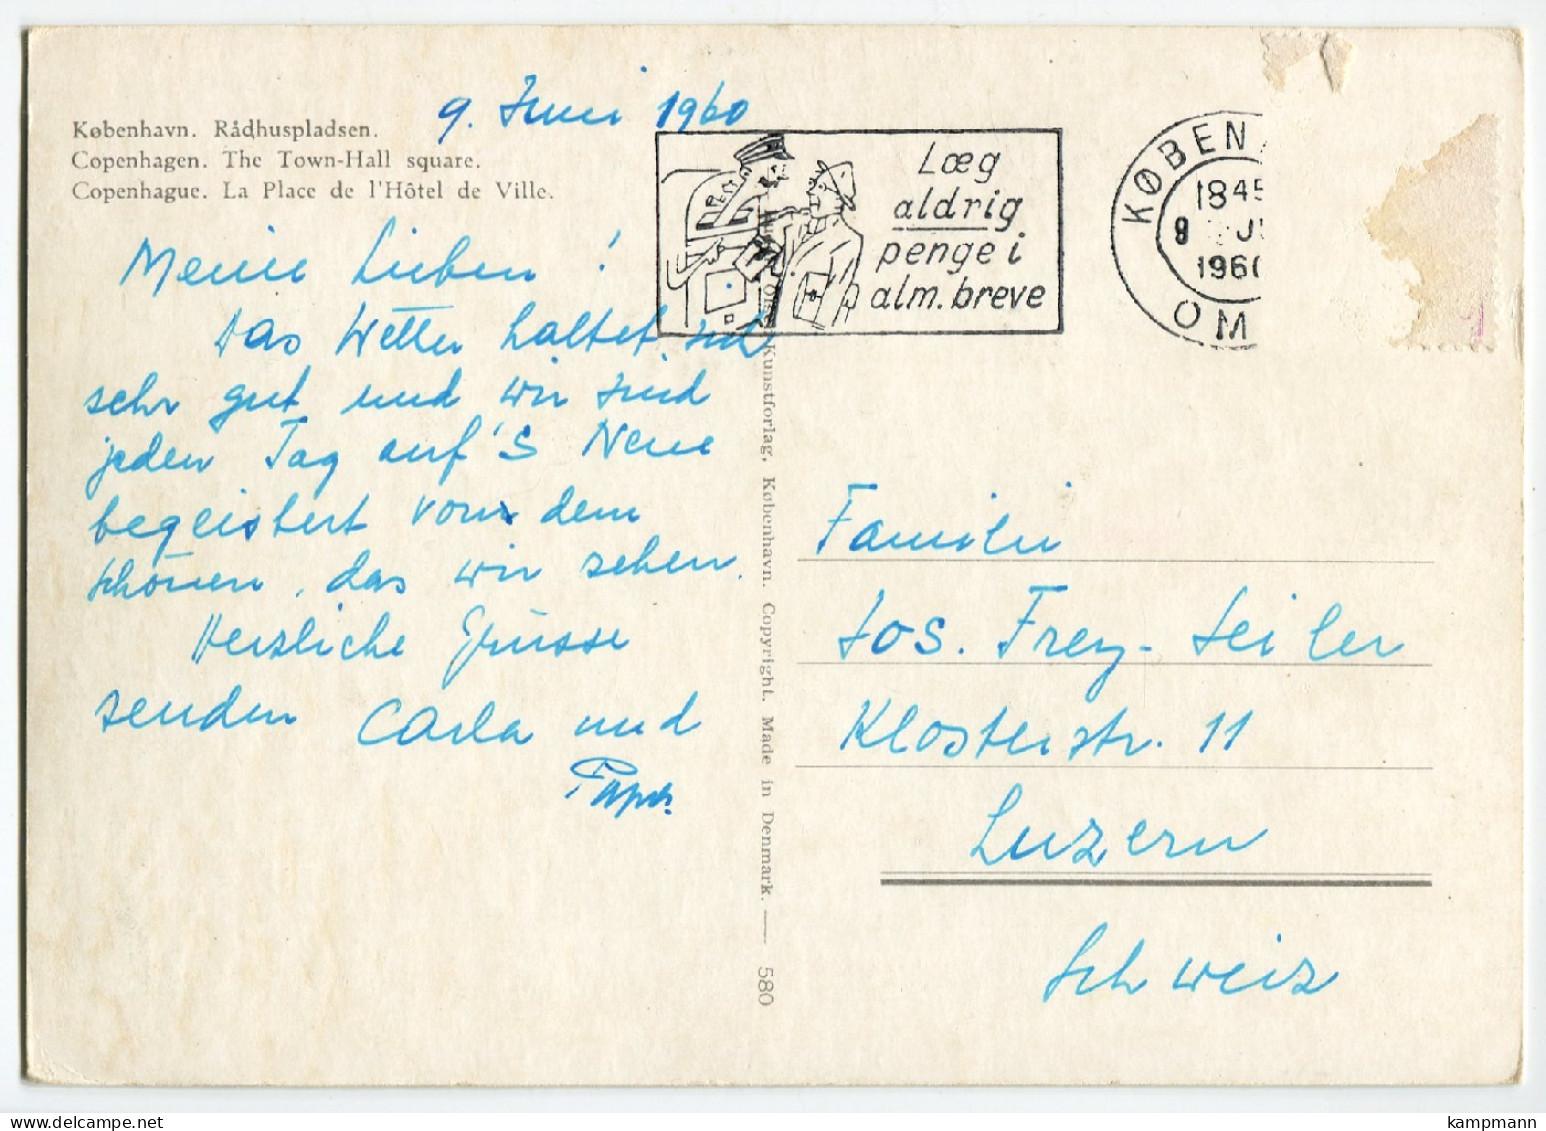 København. Rådhuspladsen.
Copenhagen. The Town-Hall square.
Copenhague. La Place de l'Hôtel de Ville.
9. Juni 1960
Læg
aldrig
penge i
alm. breve
KØBEN
1845
9 JU
1960
OM
Meine Lieben!
Das Wetter haltet sich
sehr gut und wir sind
jeden Tag auf's Neue
begeistert von dem
schönen, das wir sehen.
Herzliche Grüsse
senden Carla und
Papa.
Kunstforlag, København. Copyright. Made in Denmark. — 580
Familie
Jos. Frey-Seiler
Klosterstr. 11
Luzern
Schweiz
kampmann